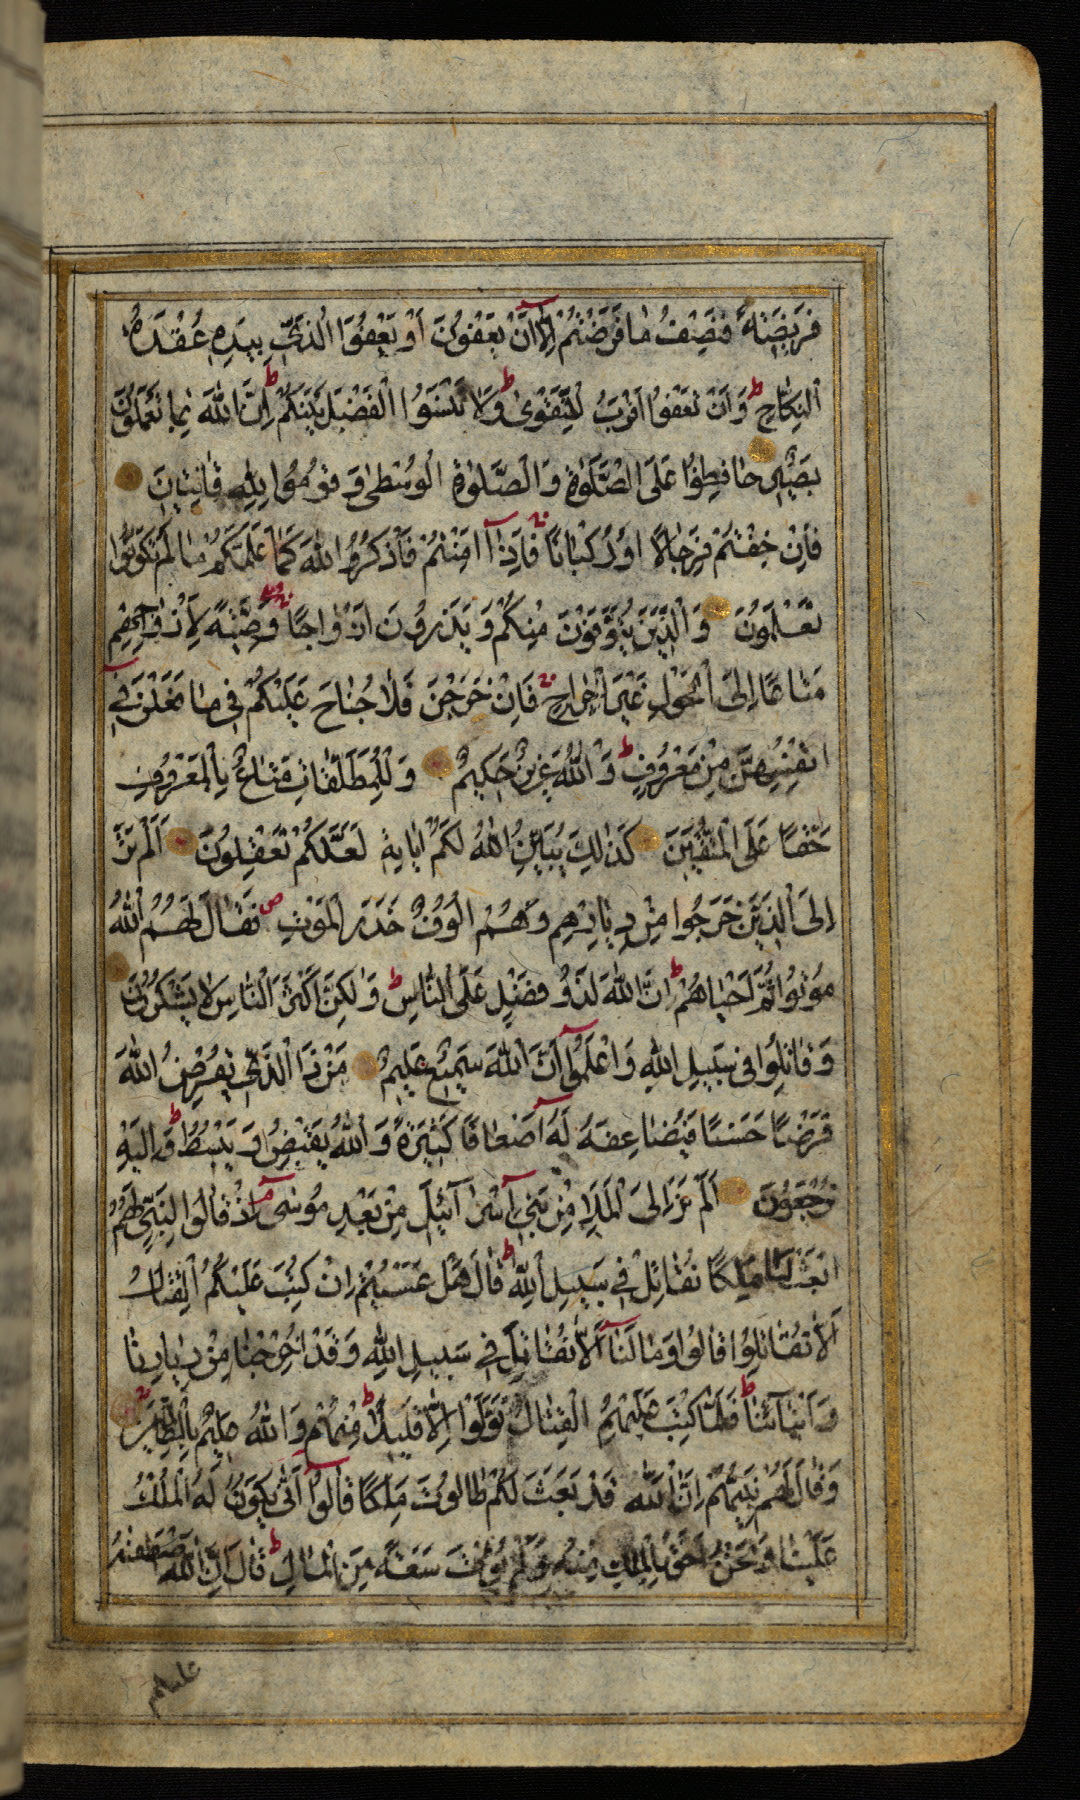 فَرِيضَةً فَنِصْفُ مَا فَرَضْتُمْ اِلَّآ اَنْ يَعْفُونَ اَوْ يَعْفُوَا الَّذِي بِيَدِهِ عُقْدَةُ
النِّكَاحِ ط وَاَنْ تَعْفُوا اَقْرَبُ لِلتَّقْوٰى ط وَلَا تَنْسَوُا الْفَضْلَ بَيْنَكُمْ ط اِنَّ اللّٰهَ بِمَا تَعْمَلُونَ
بَصِيرٌ حَافِظُوا عَلَى الصَّلَوٰةِ وَالصَّلَوٰةِ الْوُسْطٰى وَقُومُوا لِلّٰهِ قَانِتِينَ
فَاِنْ خِفْتُمْ فَرِجَالًا اَوْ رُكْبَانًا فَاِذَآ اَمِنْتُمْ فَاذْكُرُوا اللّٰهَ كَمَا عَلَّمَكُمْ مَا لَمْ تَكُونُوا
تَعْلَمُونَ وَالَّذِينَ يُتَوَفَّوْنَ مِنْكُمْ وَيَذَرُونَ اَزْوَاجًا وَصِيَّةً لِاَزْوَاجِهِمْ
مَتَاعًا اِلَى الْحَوْلِ غَيْرَ اِخْرَاجٍ فَاِنْ خَرَجْنَ فَلَا جُنَاحَ عَلَيْكُمْ فِي مَا فَعَلْنَ فِيٓ
اَنْفُسِهِنَّ مِنْ مَعْرُوفٍ ط وَاللّٰهُ عَزِيزٌ حَكِيمٌ وَلِلْمُطَلَّقَاتِ مَتَاعٌ بِالْمَعْرُوفِ
حَقًّا عَلَى الْمُتَّقِينَ كَذٰلِكَ يُبَيِّنُ اللّٰهُ لَكُمْ اٰيَاتِهِ لَعَلَّكُمْ تَعْقِلُونَ اَلَمْ تَرَ
اِلَى الَّذِينَ خَرَجُوا مِنْ دِيَارِهِمْ وَهُمْ اُلُوفٌ حَذَرَ الْمَوْتِ ص فَقَالَ لَهُمُ اللّٰهُ
مُوتُوا ثُمَّ اَحْيَاهُمْ ط اِنَّ اللّٰهَ لَذُو فَضْلٍ عَلَى النَّاسِ ط وَلٰكِنَّ اَكْثَرَ النَّاسِ لَا يَشْكُرُونَ
وَقَاتِلُوا فِي سَبِيلِ اللّٰهِ وَاعْلَمُوٓا اَنَّ اللّٰهَ سَمِيعٌ عَلِيمٌ مَنْ ذَا الَّذِي يُقْرِضُ اللّٰهَ
قَرْضًا حَسَنًا فَيُضَاعِفَهُ لَهُٓ اَضْعَافًا كَثِيرَةً وَاللّٰهُ يَقْبِضُ وَيَبْسُطُ ط وَاِلَيْهِ
تُرْجَعُونَ اَلَمْ تَرَ اِلَى الْمَلَاِ مِنْ بَنِيٓ اِسْرَآئِيلَ مِنْ بَعْدِ مُوسٰى اِذْ قَالُوا لِنَبِيٍّ لَهُمُ
ابْعَثْ لَنَا مَلِكًا نُقَاتِلْ فِي سَبِيلِ اللّٰهِ ط قَالَ هَلْ عَسَيْتُمْ اِنْ كُتِبَ عَلَيْكُمُ الْقِتَالُ
اَلَّا تُقَاتِلُوا قَالُوا وَمَا لَنَآ اَلَّا نُقَاتِلَ فِي سَبِيلِ اللّٰهِ وَقَدْ اُخْرِجْنَا مِنْ دِيَارِنَا
وَاَبْنَآئِنَا ط فَلَمَّا كُتِبَ عَلَيْهِمُ الْقِتَالُ تَوَلَّوْا اِلَّا قَلِيلًا مِنْهُمْ ط وَاللّٰهُ عَلِيمٌ بِالظَّالِمِينَ
وَقَالَ لَهُمْ نَبِيُّهُمْ اِنَّ اللّٰهَ قَدْ بَعَثَ لَكُمْ طَالُوتَ مَلِكًا قَالُوٓا اَنّٰى يَكُونُ لَهُ الْمُلْكُ
عَلَيْنَا وَنَحْنُ اَحَقُّ بِالْمُلْكِ مِنْهُ وَلَمْ يُؤْتَ سَعَةً مِنَ الْمَالِ ط قَالَ اِنَّ اللّٰهَ اصْطَفٰىهُ
عليكم